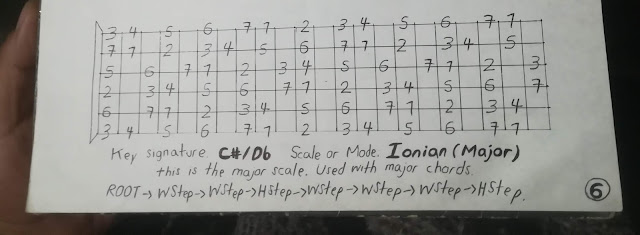 3 4 5 6 7 1 2 3 4 5 6 7 1
7 1 2 3 4 5 6 7 1 2 3 4 5
5 6 7 1 2 3 4 5 6 7 1 2 3
2 3 4 5 6 7 1 2 3 4 5 6 7
6 7 1 2 3 4 5 6 7 1 2 3 4
3 4 5 6 7 1 2 3 4 5 6 7 1
Key signature. C#/Db Scale or Mode. Ionian (Major)
this is the major scale. Used with major chords.
ROOT→WStep→WStep→HStep→WStep→WStep→WStep→HStep.
6